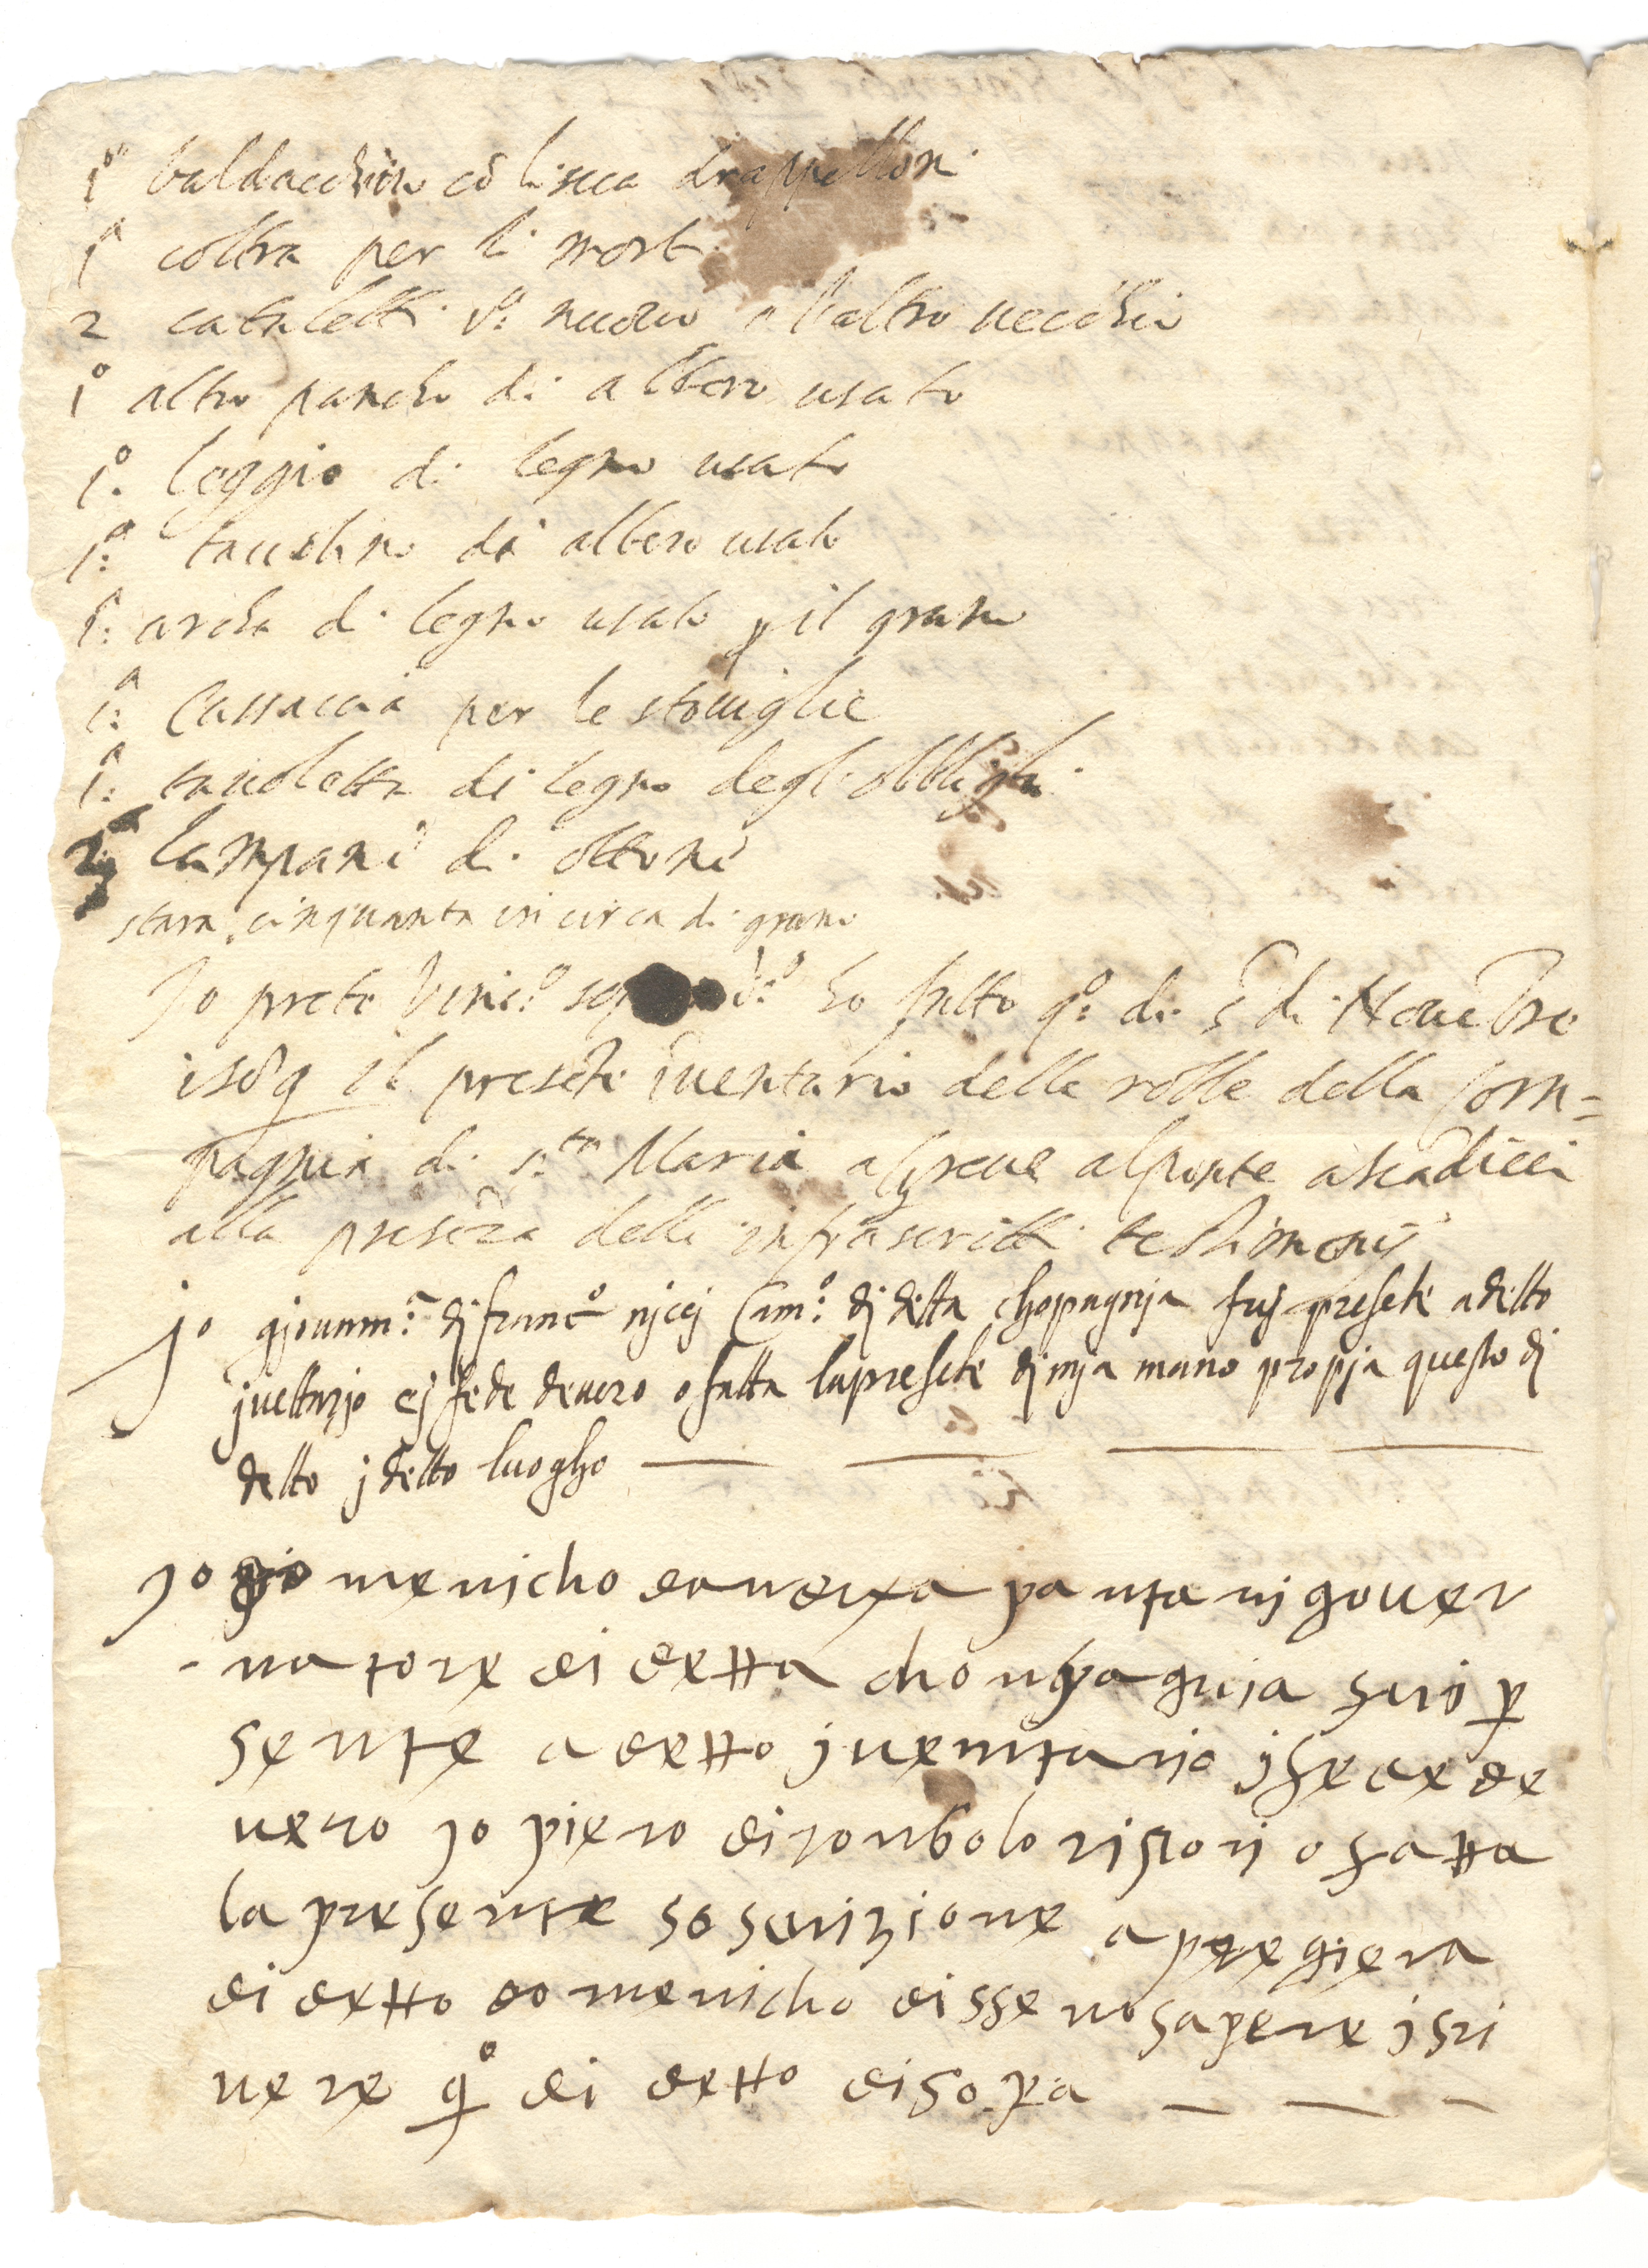 1º baldacchino cō li sua drappelloni
1ª coltra per li morti
2 cataletti 1º: nuovo e l'altro uecchio
1º altro pancho di albero usato
1º. leggio di legno usato
1º: tauolino di albero usato
1ª: archa di legno usato p il grano
1ª: Cassaccia per le stouiglie
1ª: tauoletta di legno degl'obblighi
2 lampane di ottone
stara cinquanta in circa di grano
Io prete ho fatto qº: di 5 di Noue͞bre
il presēte īuentario delle robbe della Com=
pagnia di s.ta Maria a Greue al ponte a scādicci
alla presēza delli infrascritti testimonij
Jo giouann: dj francº njccj Cam:º dj detta chopagnja fuj presēte a detto
juētarjo ej fede deuero o fatta la presēte dj mja mano propja questo dj
detto j detto luogho
Jo menicho da uerza pantanj gouer
-natore di detta chonpagnja fui p
sente a detto juentario j fede de
uero jo piero di ronbolo ristorj o fatta
la presente soscrizione a pregiera
di detto domenicho disse nō sapere iscri
uere qº di detto disopra